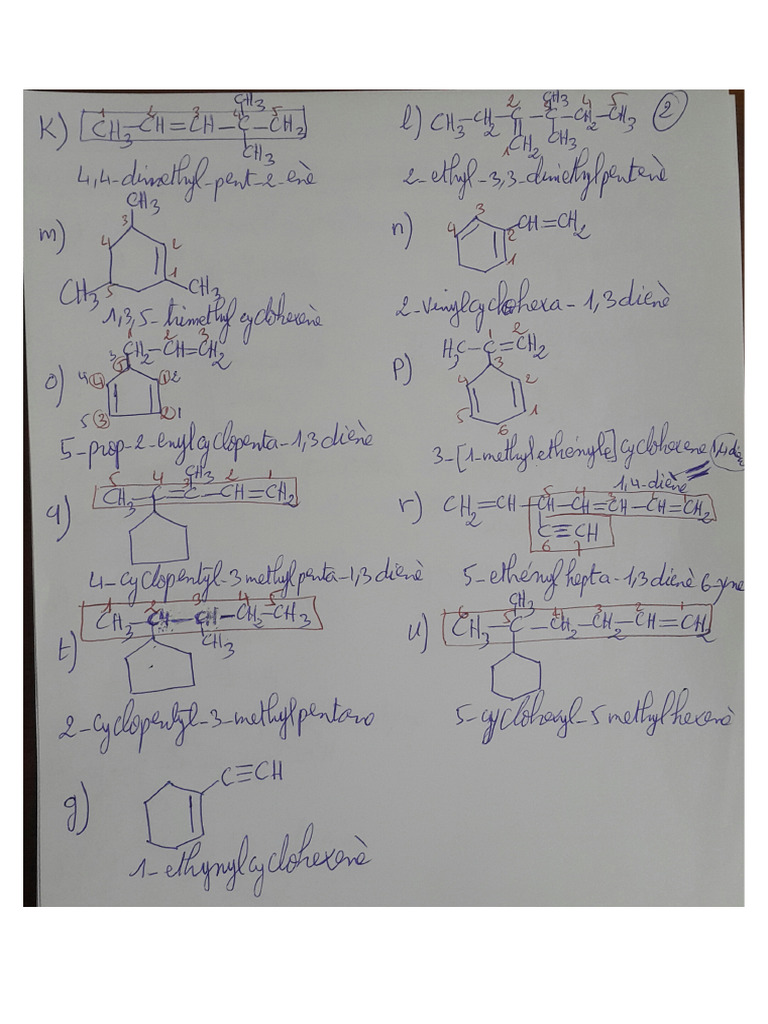 2
k) CH3-CH=CH-C-CH3
CH3
CH3
1 2 3 4 5
4,4-dimethyl-pent-2-enè
l) CH3-CH2-C-C-CH2-CH3
CH2
CH3
CH3
1 2 3 4 5
2-ethyl-3,3-dimethylpentenè
m) CH3
CH3
CH3
1 2 3 4 5
1,3,5-trimethyl cyclohexenè
n) CH=CH2
1 2 3 4
2-vinylcyclohexa-1,3dienè
o) CH2-CH=CH2
1 2 3
3 4 5 1 2
5-prop-2-enylcyclopenta-1,3dienè
p) H3C-C=CH2
1 2
1 2 3 4 5 6
3-[1-methylethényle]cyclohexene 1,4diè
1,4-dienè
q) CH3-C=C-CH=CH2
CH3
5 4 3 2 1
4-cyclopentyl-3methylpenta-1,3dienè
r) CH2=CH-CH-CH=CH-CH=CH2
C≡CH
5 4 1
6 7
5-ethénylhepta-1,3dienè 6-yne
t) CH3-CH-CH-CH2-CH3
CH3
1 2 3 4 5
2-cyclopentyl-3-methylpentano
u) CH3-C-CH2-CH2-CH=CH2
CH3
6 5 4 3 2 1
5-cyclohexyl-5methylhexenè
g) C≡CH
1-ethynylcyclohexenè